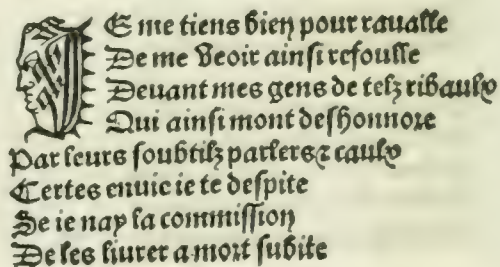 IE me tiens bien pour rauasse
De me Veoir ainsi refousse
Deuant mes gens de telz ribaulx
Qui ainsi mont deshonnore
Par leurs soubtilz parlers & caulx
Certes enuie ie te despite
Se ie nay la commission
De les liurer a mort subite